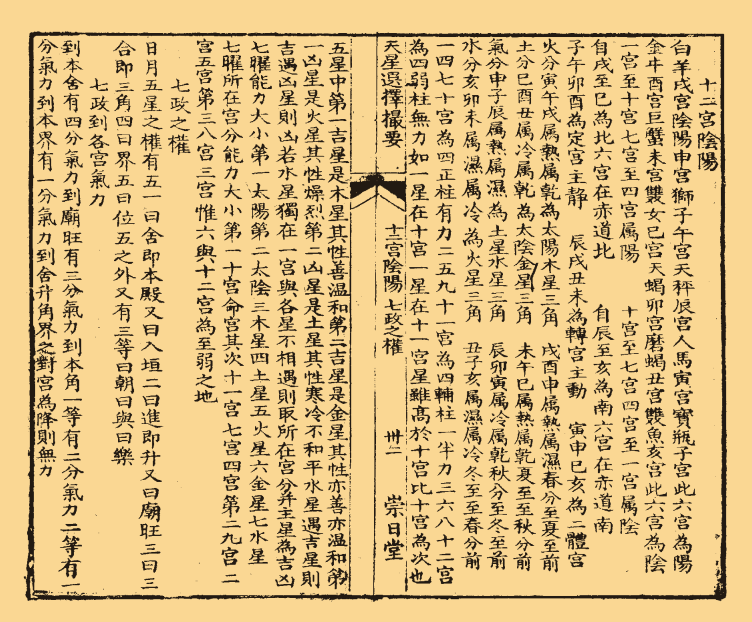 十二宮陰陽
白羊戌宮陰陽申宮獅子午宮天秤辰宮人馬寅宮寶瓶子宮此六宮為陽
金牛酉宮巨蟹未宮雙女巳宮天蝎卯宮磨蝎丑宮雙魚亥宮此六宮為陰
一宮至十宮七宮至四宮属陽　十宮至七宮四宮至一宮属陰
自戌至巳為北六宮在赤道北　自辰至亥為南六宮在赤道南
子午卯酉為定宮主静　辰戌丑未為轉宮主動　寅申巳亥為二體宮
火分寅午戌属熱属乾為太陽木星三角　戌酉申属熱属濕春分至夏至前
土分巳酉丑属冷属乾為太陰金星三角　未午巳属熱属乾夏至至秋分前
氣分申子辰属熱属濕為土星水星三角　辰卯寅属冷属乾秋分至冬至前
水分亥卯未属濕属冷為火星三角　丑子亥属濕属冷冬至至春分前
一四七十宮為四正柱有力二五九十一宮為四輔柱一半力三六八十二宮
為四弱柱無力如一星在十宮一星在十一宮星雖髙於十宮比十宮為次也
天星選擇撮要　十二宮陰陽　七政之權　卅二　崇日堂
五星中第一吉星是木星其性善温和第二吉星是金星其性亦善亦温和第
一凶星是火星其性燥烈第二凶星是土星其性寒冷不和平水星遇吉星則
吉遇凶星則凶若水星獨在一宮與各星不相遇則取所在宮分并主星為吉凶
七曜能力大小第一太陽第二太陰三木星四土星五火星六金星七水星
七曜所在宮分能力大小第一十宮命宮其次十一宮七宮四宮第二九宮二
宮五宮第三八宮三宮惟六與十二宮為至弱之地
七政之權
日月五星之權有五一曰舍即本殿又曰入垣二曰進即升又曰廟旺三曰三
合即三角四曰界五曰位五之外又有三等曰朝曰與曰樂
七政到各宮氣力
到本舍有四分氣力到廟旺有三分氣力到本角一等有二分氣力二等有一
分氣力到本界有一分氣力到舍升角界之對宮為降則無力